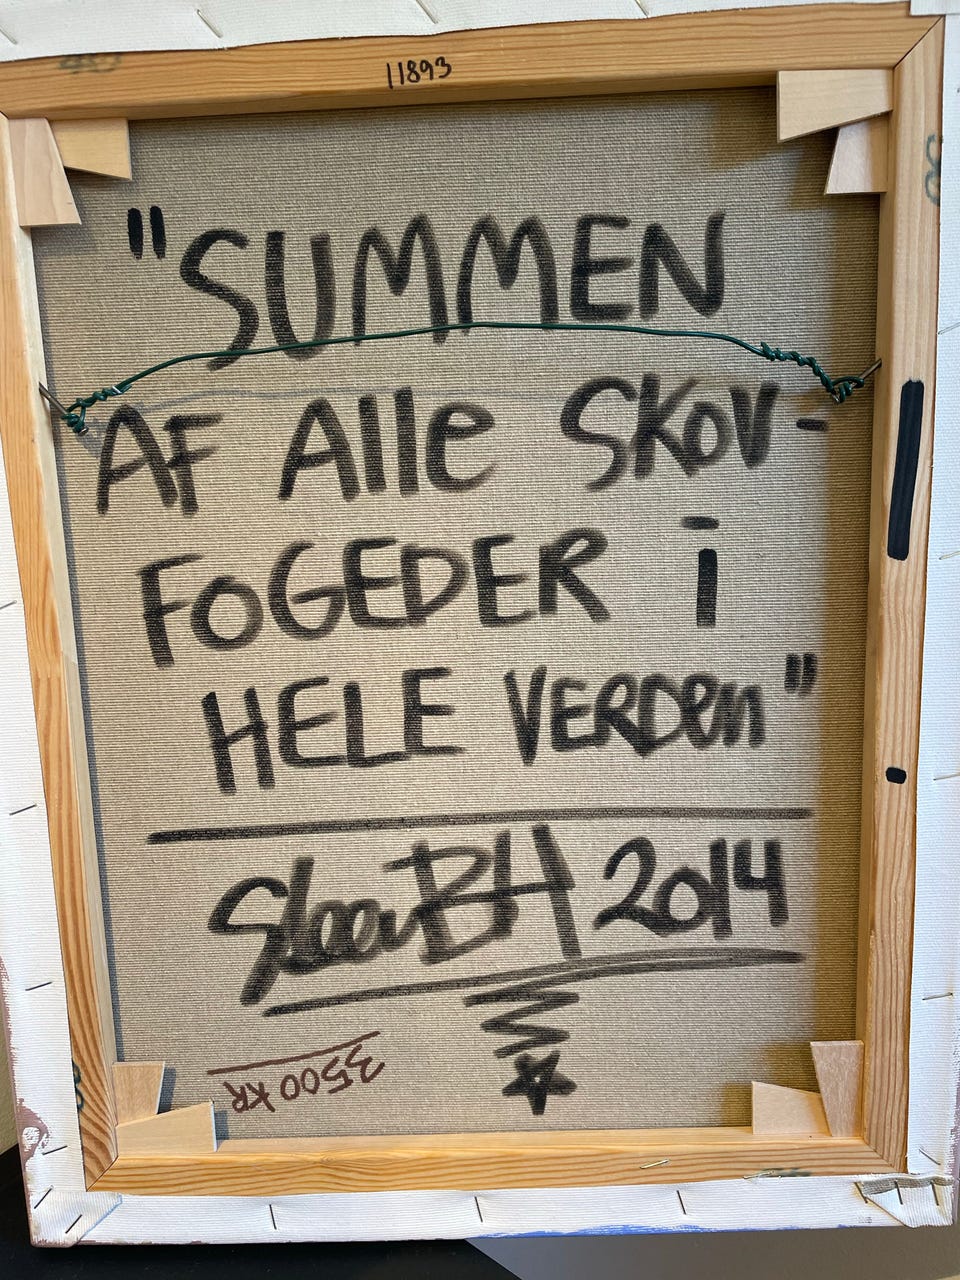 11893
"SUMMEN
AF Alle SKOV-
FOGEDER i
HELE VERDEN"
SteenBH 2014
3500 KR